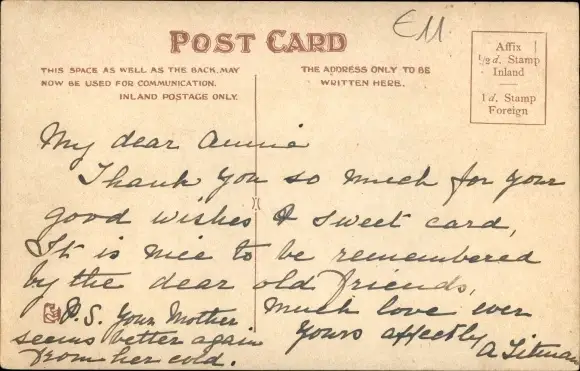 E11
POST CARD
THIS SPACE AS WELL AS THE BACK, MAY
NOW BE USED FOR COMMUNICATION.
INLAND POSTAGE ONLY.
THE ADDRESS ONLY TO BE
WRITTEN HERE.
Affix
½d. Stamp
Inland
1d. Stamp
Foreign
My dear Annie
Thank you so much for your
good wishes & sweet card,
It is nice to be remembered
by the dear old friends,
Much love ever
Yours affectly
A Titman
P.S. Your Mother
seems better again
from her cold.